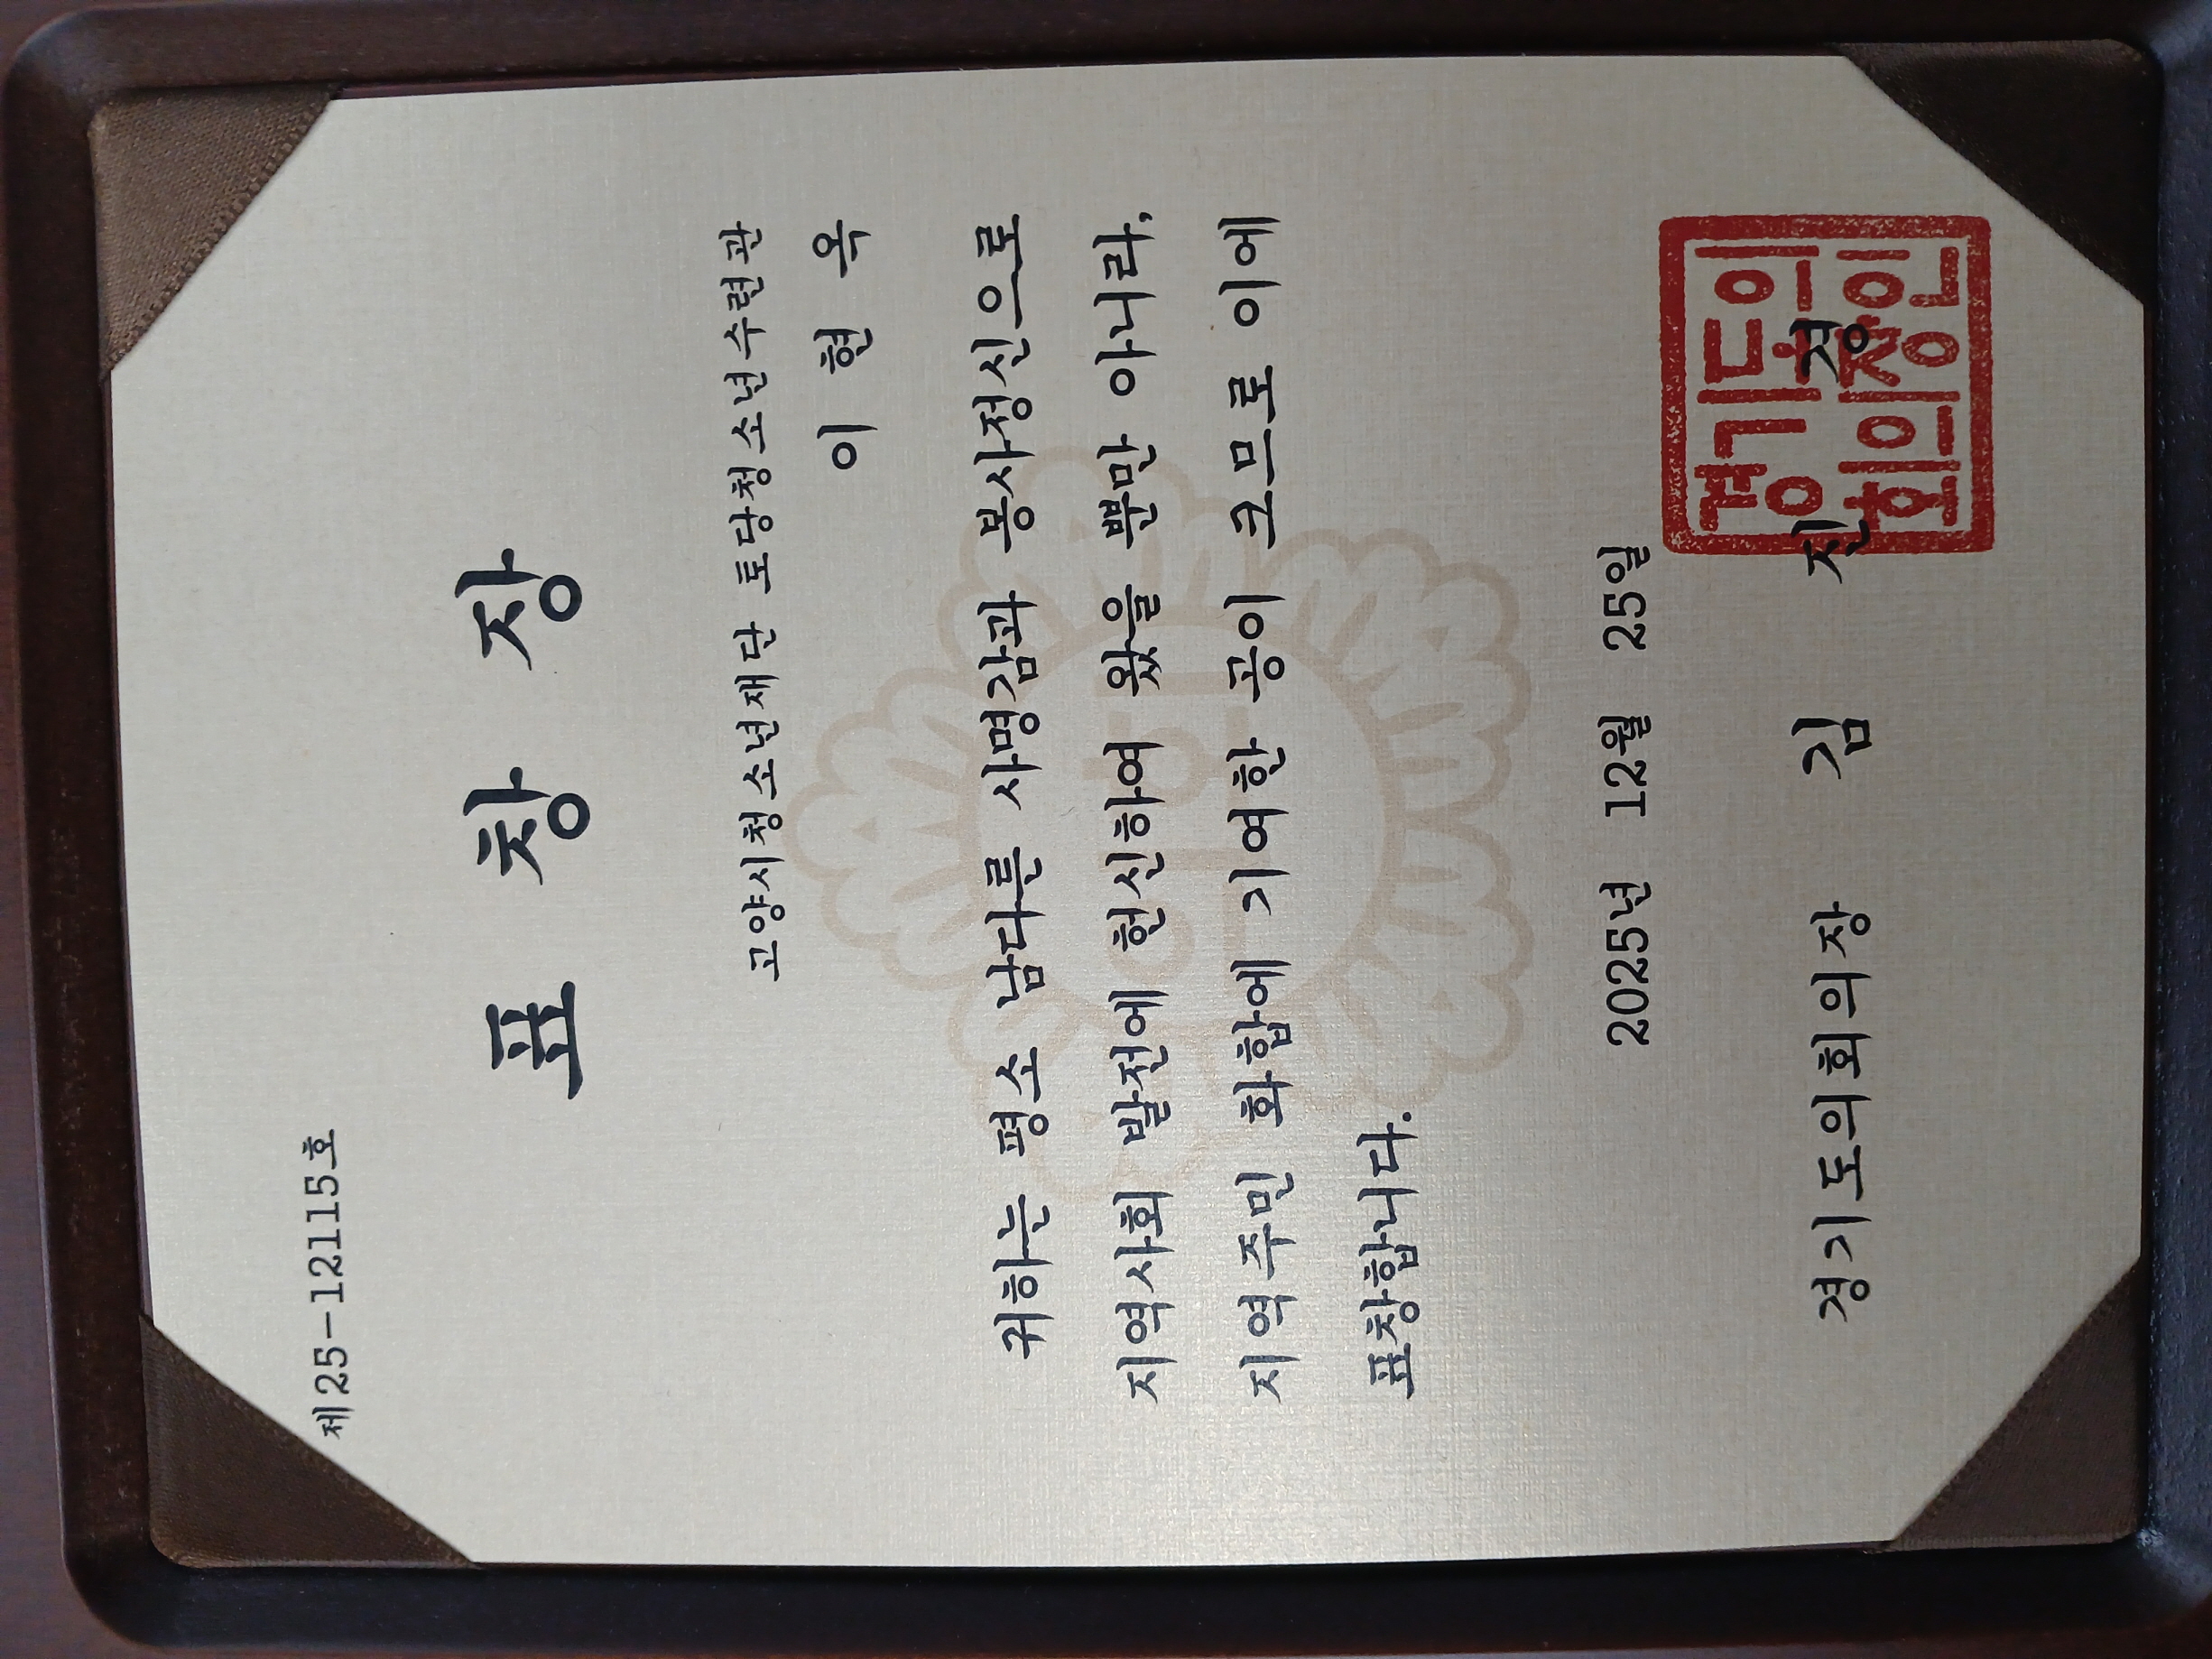 제25-12115호
표 창 장
고양시청소년재단 토당청소년수련관
이 현 옥
귀하는 평소 남다른 사명감과 봉사정신으로
지역사회 발전에 헌신하여 왔을 뿐만 아니라,
지역주민 화합에 기여한 공이 크므로 이에
표창합니다.
2025년 12월 25일
경기도의회의장 김 진 경
경기도의
회의장인